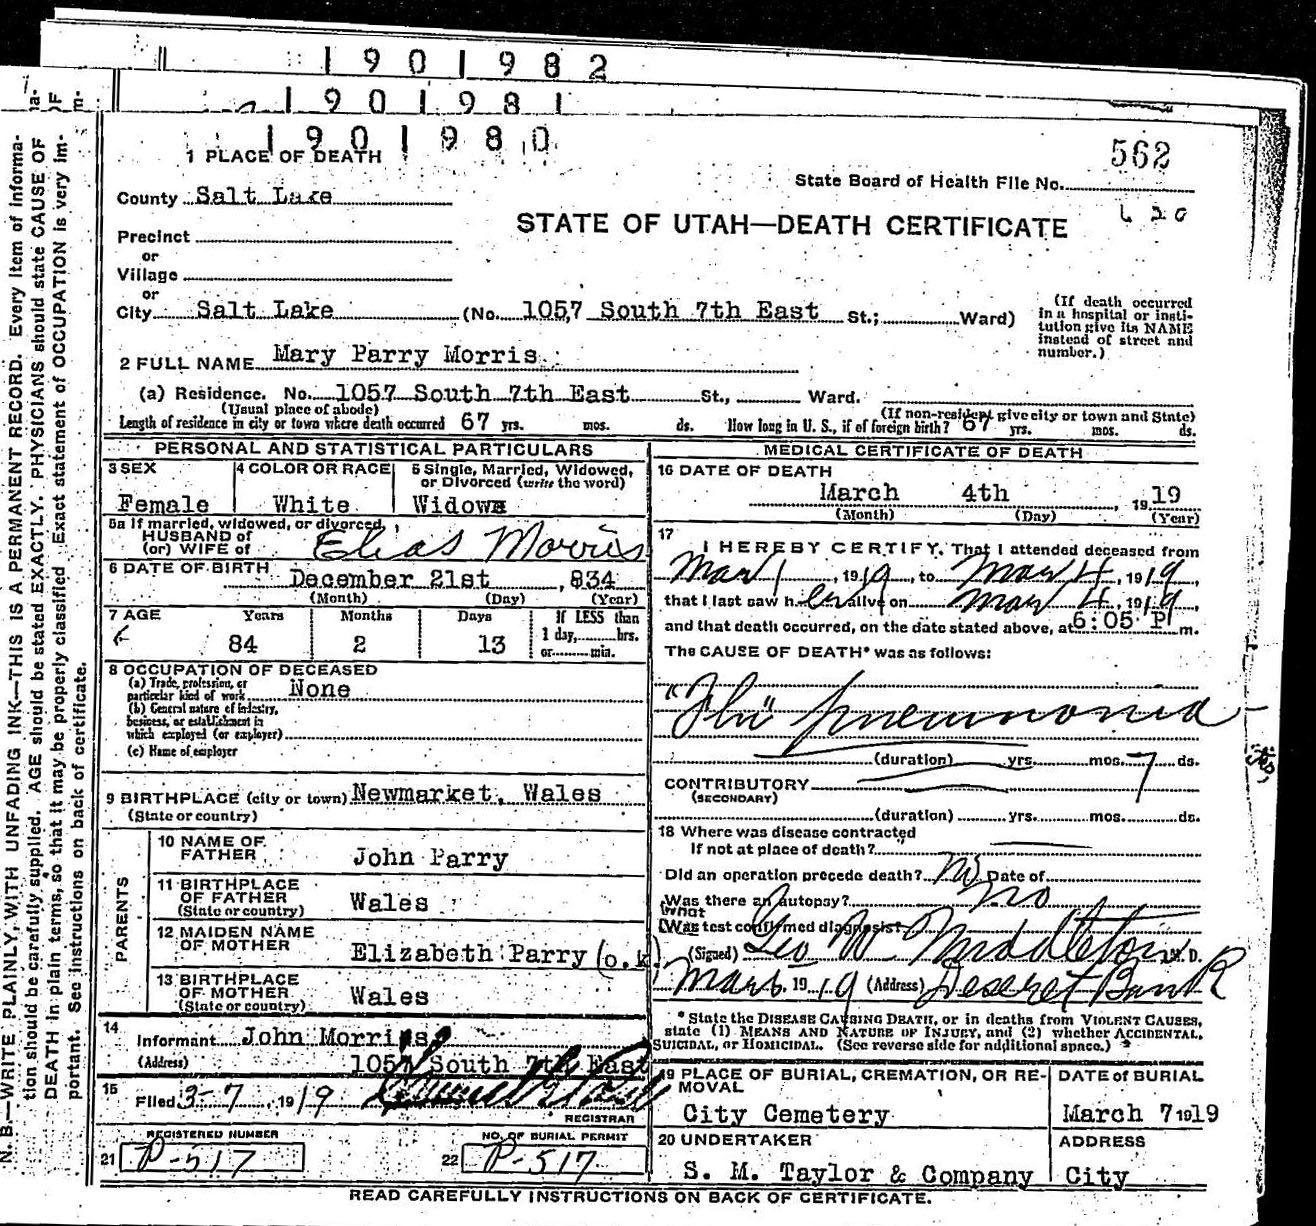 1901982
1901981
1901980
562
1 PLACE OF DEATH
State Board of Health File No.
County Salt Lake
STATE OF UTAH—DEATH CERTIFICATE
620
Precinct
or
Village
or
City Salt Lake (No. 1057 South 7th East St.; Ward)
(If death occurred
in a hospital or insti-
tution give its NAME
instead of street and
number.)
2 FULL NAME Mary Parry Morris
(a) Residence. No. 1057 South 7th East St., Ward.
(Usual place of abode) (If non-resident give city or town and State)
Length of residence in city or town where death occurred 67 yrs. mos. ds. How long in U. S., if of foreign birth? 67 yrs. mos. ds.
PERSONAL AND STATISTICAL PARTICULARS
3 SEX
Female
4 COLOR OR RACE
White
5 Single, Married, Widowed,
or Divorced (write the word)
Widow
5a If married, widowed, or divorced
HUSBAND of
(or) WIFE of Elias Morris
6 DATE OF BIRTH
December 21st, 834
(Month) (Day) (Year)
7 AGE Years Months Days If LESS than
84 2 13 1 day, hrs.
or min.
8 OCCUPATION OF DECEASED
(a) Trade, profession, or
particular kind of work None
(b) General nature of industry,
business, or establishment in
which employed (or employer)
(c) Name of employer
9 BIRTHPLACE (city or town) Newmarket, Wales
(State or country)
PARENTS
10 NAME OF
FATHER John Parry
11 BIRTHPLACE
OF FATHER
(State or country) Wales
12 MAIDEN NAME
OF MOTHER Elizabeth Parry (o.k)
13 BIRTHPLACE
OF MOTHER
(State or country) Wales
14
Informant John Morris
(Address) 1057 South 7th East
15
Filed 3-7, 1919
REGISTRAR
REGISTERED NUMBER
21 P-517
NO. OF BURIAL PERMIT
22 P-517
MEDICAL CERTIFICATE OF DEATH
16 DATE OF DEATH
March 4th, 19 19
(Month) (Day) (Year)
17
I HEREBY CERTIFY, That I attended deceased from
Mar 1, 1919, to Mar 4, 1919,
that I last saw her alive on Mar 4, 1919,
and that death occurred, on the date stated above, at 6:05 P m.
The CAUSE OF DEATH* was as follows:
"Flu" pneumonia
(duration) yrs. mos. 7 ds.
CONTRIBUTORY
(SECONDARY)
(duration) yrs. mos. ds.
18 Where was disease contracted
If not at place of death?
Did an operation precede death? No Date of
Was there an autopsy? no
What
(Was test confirmed diagnosis?
(Signed) Geo W Middleton M. D.
Mar 6, 1919 (Address) Deseret Bank
* State the DISEASE CAUSING DEATH, or in deaths from VIOLENT CAUSES,
state (1) MEANS AND NATURE OF INJURY, and (2) whether ACCIDENTAL,
SUICIDAL, or HOMICIDAL. (See reverse side for additional space.)
19 PLACE OF BURIAL, CREMATION, OR RE-
MOVAL
City Cemetery
DATE of BURIAL
March 7 1919
20 UNDERTAKER
S. M. Taylor & Company
ADDRESS
City
READ CAREFULLY INSTRUCTIONS ON BACK OF CERTIFICATE.
N. B.—WRITE PLAINLY, WITH UNFADING INK—THIS IS A PERMANENT RECORD. Every item of informa-
tion should be carefully supplied. AGE should be stated EXACTLY. PHYSICIANS should state CAUSE OF
DEATH in plain terms, so that it may be properly classified. Exact statement of OCCUPATION is very im-
portant. See instructions on back of certificate.